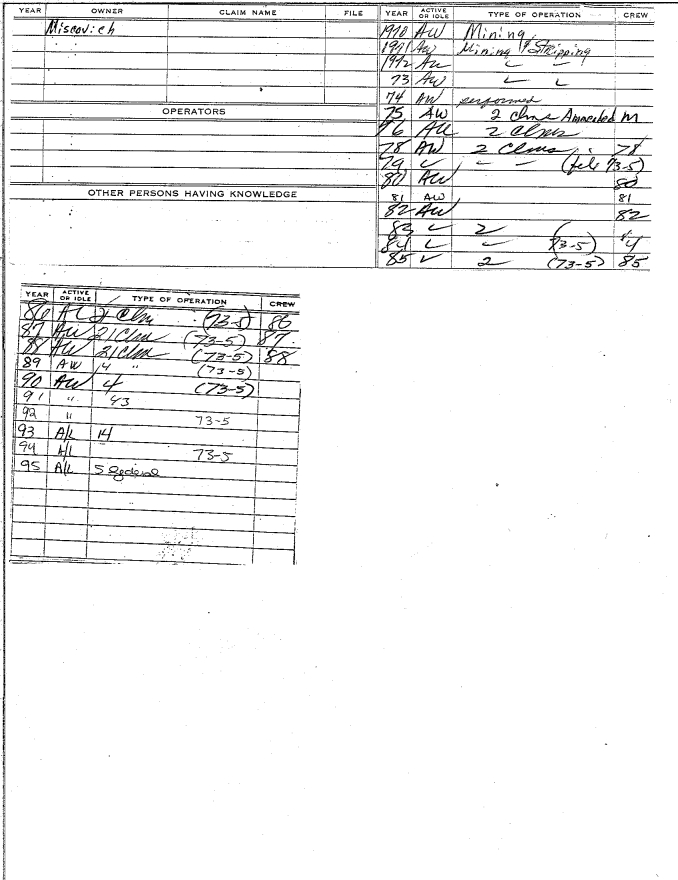 YEAR OWNER CLAIM NAME FILE
Miscovich
OPERATORS
OTHER PERSONS HAVING KNOWLEDGE
YEAR ACTIVE OR IDLE TYPE OF OPERATION CREW
1970 AW Mining
1971 AW Mining & Stripping
1972 AW " "
73 AW " "
74 AW performed
75 AW 2 clms Amended M
76 AW 2 Clms
78 AW 2 Clms 78
79 ✓ – – (file 73-5)
80 AW 80
81 AW 81
82 AW 82
83 ✓ 2
84 ✓ ✓ 73-5) 84
85 ✓ 2 (73-5) 85
YEAR ACTIVE OR IDLE TYPE OF OPERATION CREW
86 AW 2 Clm (73-5) 86
87 AW 21 Clm (73-5) 87
88 AW 21 Clm (73-5) 88
89 AW 14 " (73-5)
90 AW 4 (73-5)
91 " 43
92 " 73-5
93 A/L 14
94 A/L 73-5
95 A/L 5 federal